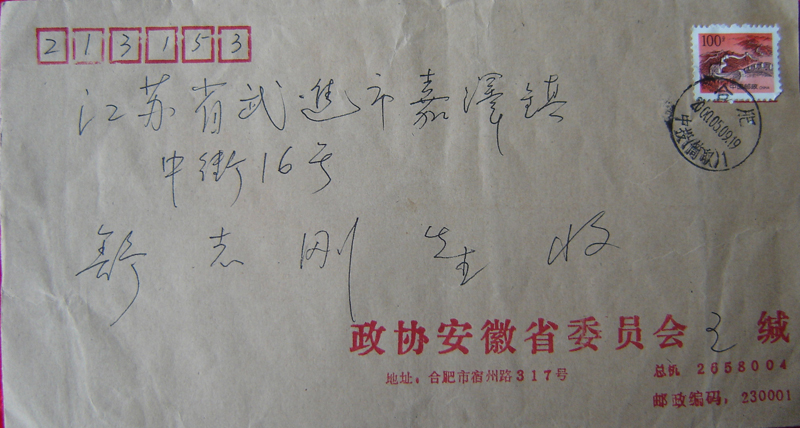 213153
100
江苏省武進市嘉澤镇
中街16号
舒志刚 先生 收
合肥
2000.05.09.19
政协安徽省委员会 王 缄
地址：合肥市宿州路317号
总机 2658004
邮政编码：230001